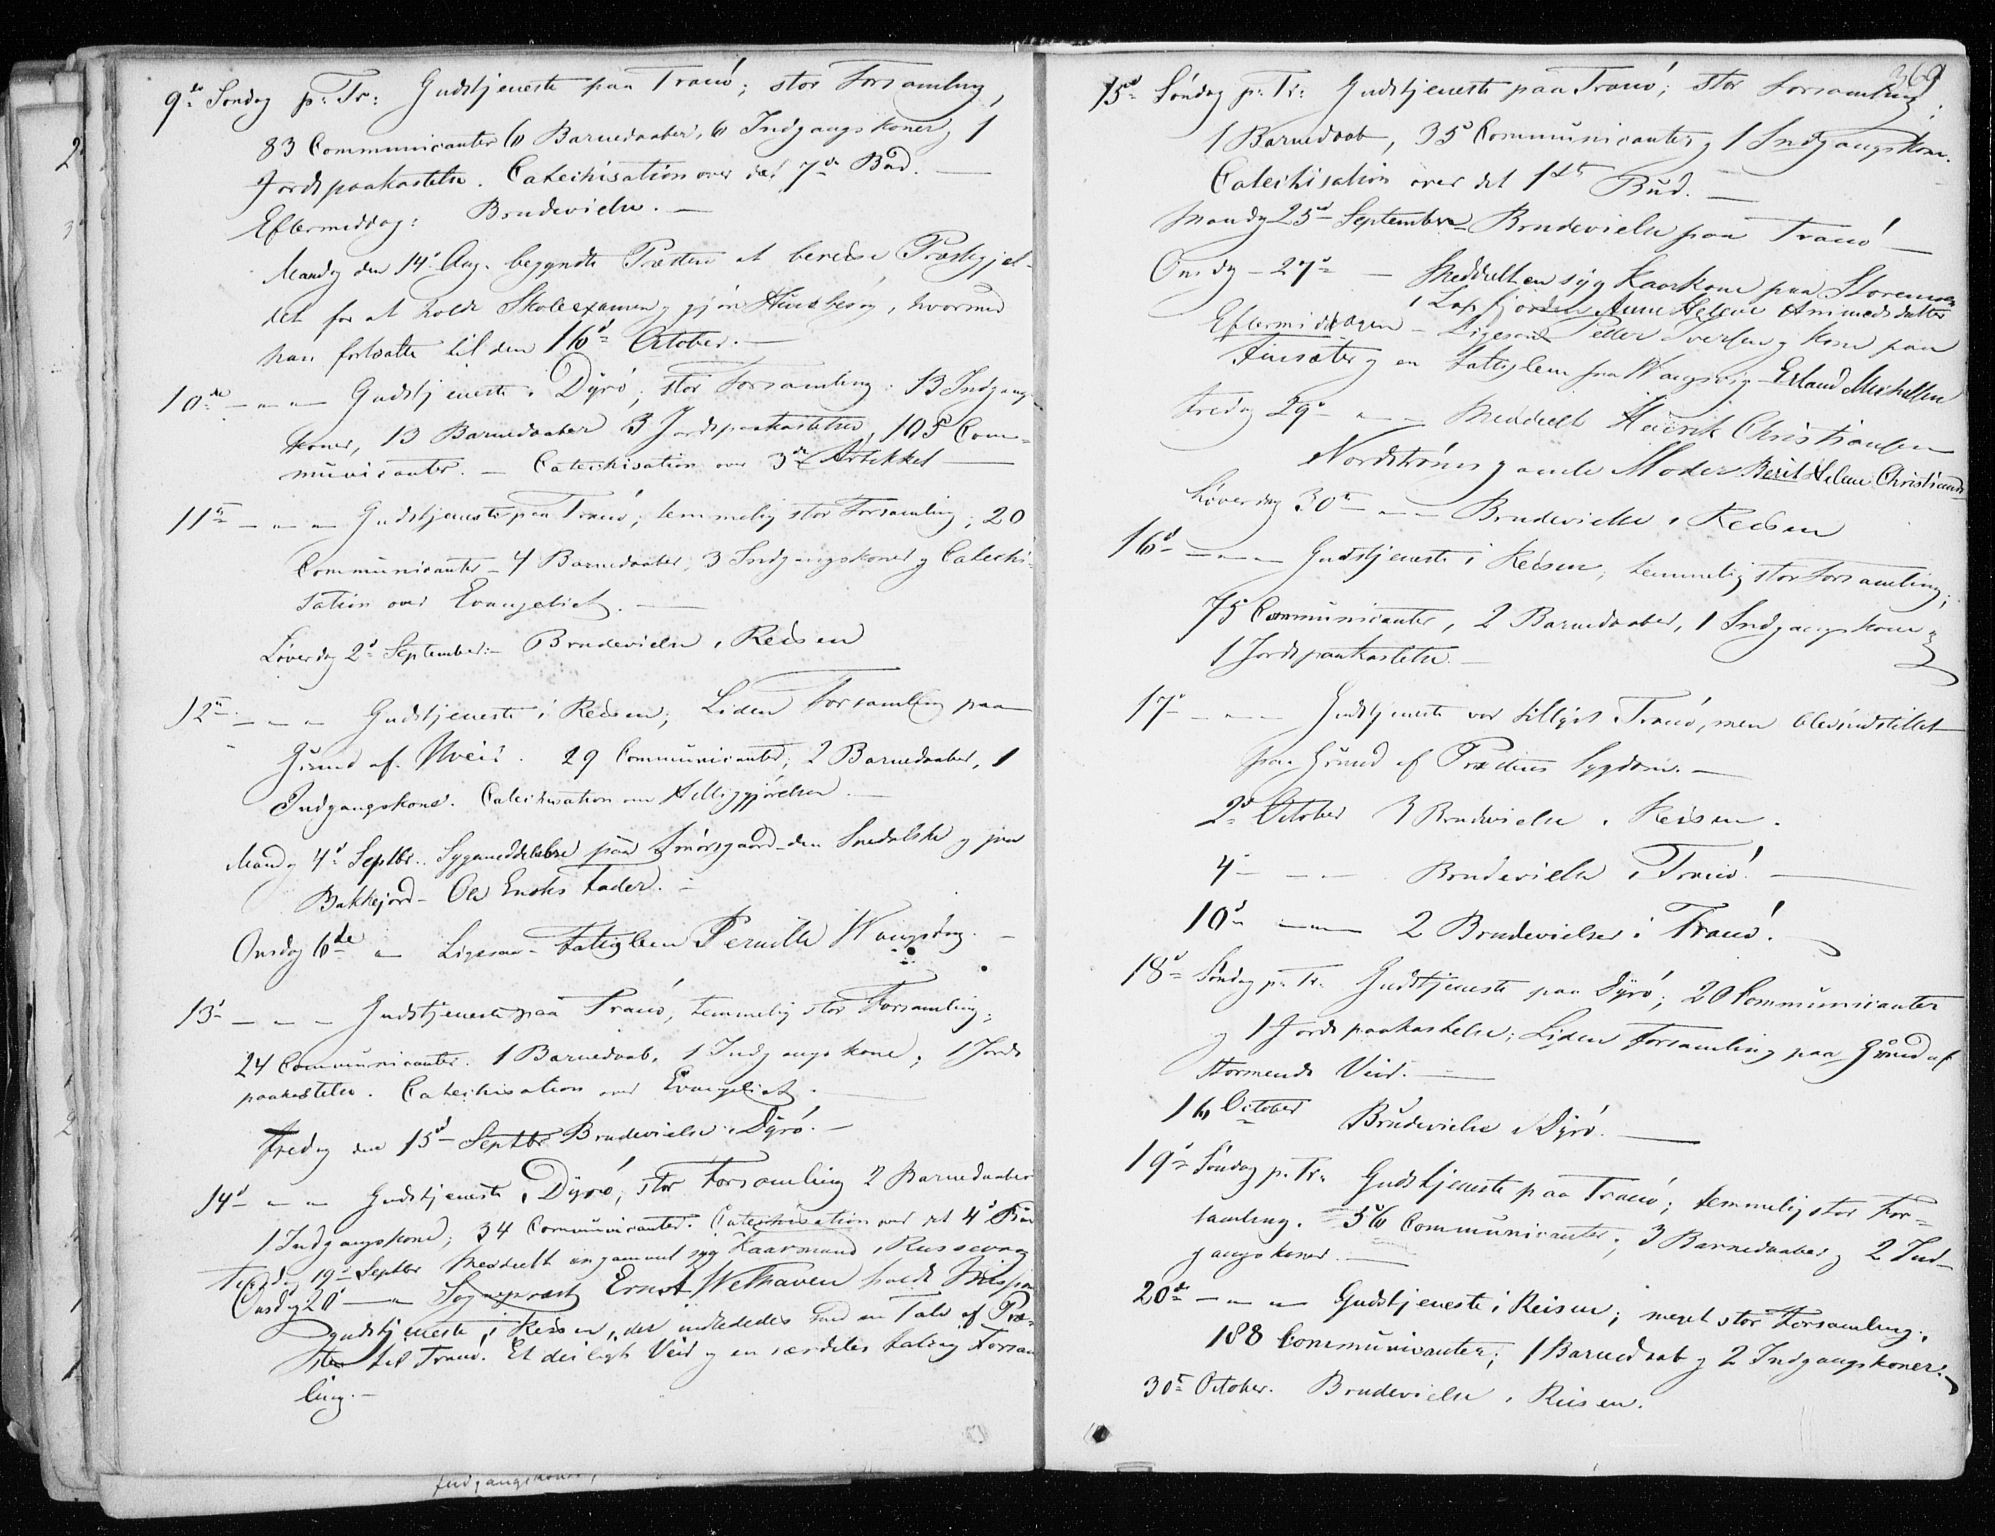 9de Søndag p: Tr: Gudstjeneste paa Tranø; stor Forsamling,
83 Communicanter 6 Barnedaaber, 6 Indgangskoner, 1
Jordpaakastelse. Catechisation over det 7de Bud. —
Eftermiddag: Brudevielse. —
Mandag den 14de Aug. begyndte Præsten at bereise Præstegjel-
det for at holde Skoleexamen og gjøre Huusbesøg, hvormed
han fortsatte til den 16de October. —
10de — — — Gudstjeneste i Dyrø, stor Forsamling: 13 Indgangs-
koner, 13 Barnedaaber 3 Jordpaakastelser, 105 Com-
municanter. — Catechisation over 3de Artikkel —
11te — — — Gudstjeneste paa Tranø, temmelig stor Forsamling; 20
Communicanter — 4 Barnedaaber, 3 Indgangskoner og Catechi-
sation over Evangeliet. —
Løverdag 2d September: — Brudevielse i Reisen
12te — — — Gudstjeneste i Reisen; Liden Forsamling paa
Grund af Uveir. 29 Communicanter, 2 Barnedaaber, 1
Indgangskone. Catechisation om Helliggjørelsen. —
Mandag 4d Septbr. Sygemeddelelse paa Smørsgaard — den og paa
Bakkejord — Ole Enoks Fader. —
Onsdag 6de — Ligesaa — Fatiglem Pernille Wangsdag. —
13d — — — Gudstjeneste paa Tranø, temmelig stor Forsamling;
24 Communicanter. 1 Barnedaab, 1 Indgangskone, 1 Jords
paakastelse. Catechisation over Evangeliet. —
Fredag den 15d Septbr Brudevielse i Dyrø. —
14d — — Gudstjeneste i Dyrø, stor Forsamling 2 Barnedaaber
1 Indgangskone, 34 Communicanter. Catechisation over det 4d Bud
Tirsdag 19d Septbr Meddeelt en gammel syg Kaarmand i Russevaag
Onsdag 20d — — Sogneprest Ernst Welhaven holdt Mission
gudstjeneste i Reisen, der indlededes med en Tale af Præ-
sten til Tranø. Et deiligt Veir og en særdeles talrig Forsam
ling. —
Indgangskoner,
369
15d Søndag p: Tr: Gudstjeneste paa Tranø; stor Forsamling;
1 Barnedaab, 35 Communicanter og 1 Indgangskone.
Catechisation over det 1ste Bud. —
Mandag 25d September Brudevielse paa Tranø —
Onsdag — 27d — Meddeelt en syg Kaarkone paa Storemoen
i Laxfjorden Anne Helene Ammedsdatter
Eftermiddagen — Ligesaa Peder Iversen og Kone paa
Finsæter og en Fattiglem fra Wangsvig — Erland Mikkelsen
Fredag 29d — — Meddeelt Henrik Christiansen
Nordstrøms gamle Moder Berit Helene Christiansd
Løverdag 30te — — Brudevielse i Reisen
16d — — — Gudstjeneste i Reisen, temmelig stor Forsamling;
75 Communicanter, 2 Barnedaaber, 1 Indgangskone og
1 Jordspaakastelse. —
17d — — — Gudstjeneste var tillyst Tranø, men blev indstillet
paa Grund af Præstens Sygdom. —
2d October 3 Brudevielse i Reisen.
4d — — — Brudevielse i Tranø. —
10d — — — 2 Brudevielser i Tranø.
18d Søndag p: Tr: Gudstjeneste paa Dyrø; 20 Communicanter
og 1 Jordspaakastelse; Liden Forsamling paa Grund af
stormende Veir. —
16 October Brudevielse i Dyrø. —
19d Søndag p: Tr: Gudstjeneste paa Tranø; temmelig stor For-
samling. 56 Communicanter; 3 Barnedaaber og 2 Ind-
gangskoner. —
20de — — — Gudstjeneste i Reisen; meget stor Forsamling,
188 Communicanter; 1 Barnedaab og 2 Indgangskoner.
30te October. Brudevielse i Reisen.